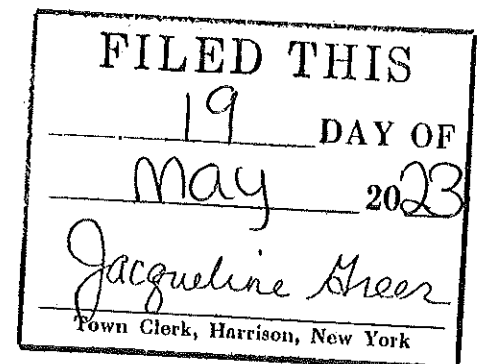 FILED THIS
19 DAY OF
May 2023
Jacqueline Greer
Town Clerk, Harrison, New York